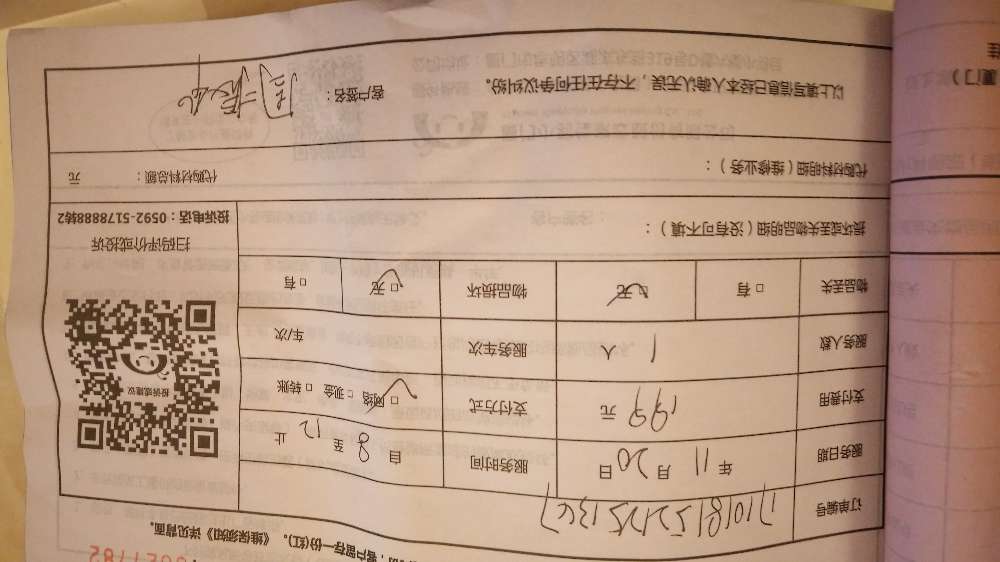 客户留存一份(红)。《维保须知》详见背面。
订单编号
服务日期 年 11 月 20 日 服务时间 自 8 至 12 止
支付费用 199 元 支付方式 □网络 □现金 □转账
服务人数 1 人 服务车次 车/次
物品丢失 □有 □无 物品损坏 □无 □有
扫码评价或投诉
投诉电话：0592-5178888转2
投诉或建议
损坏或丢失物品明细（没有可不填）：
代购材料明细（维修业务）： 代购材料总额： 元
以上填写信息已经本人确认无误，不存在任何争议纠纷。 客户签名：